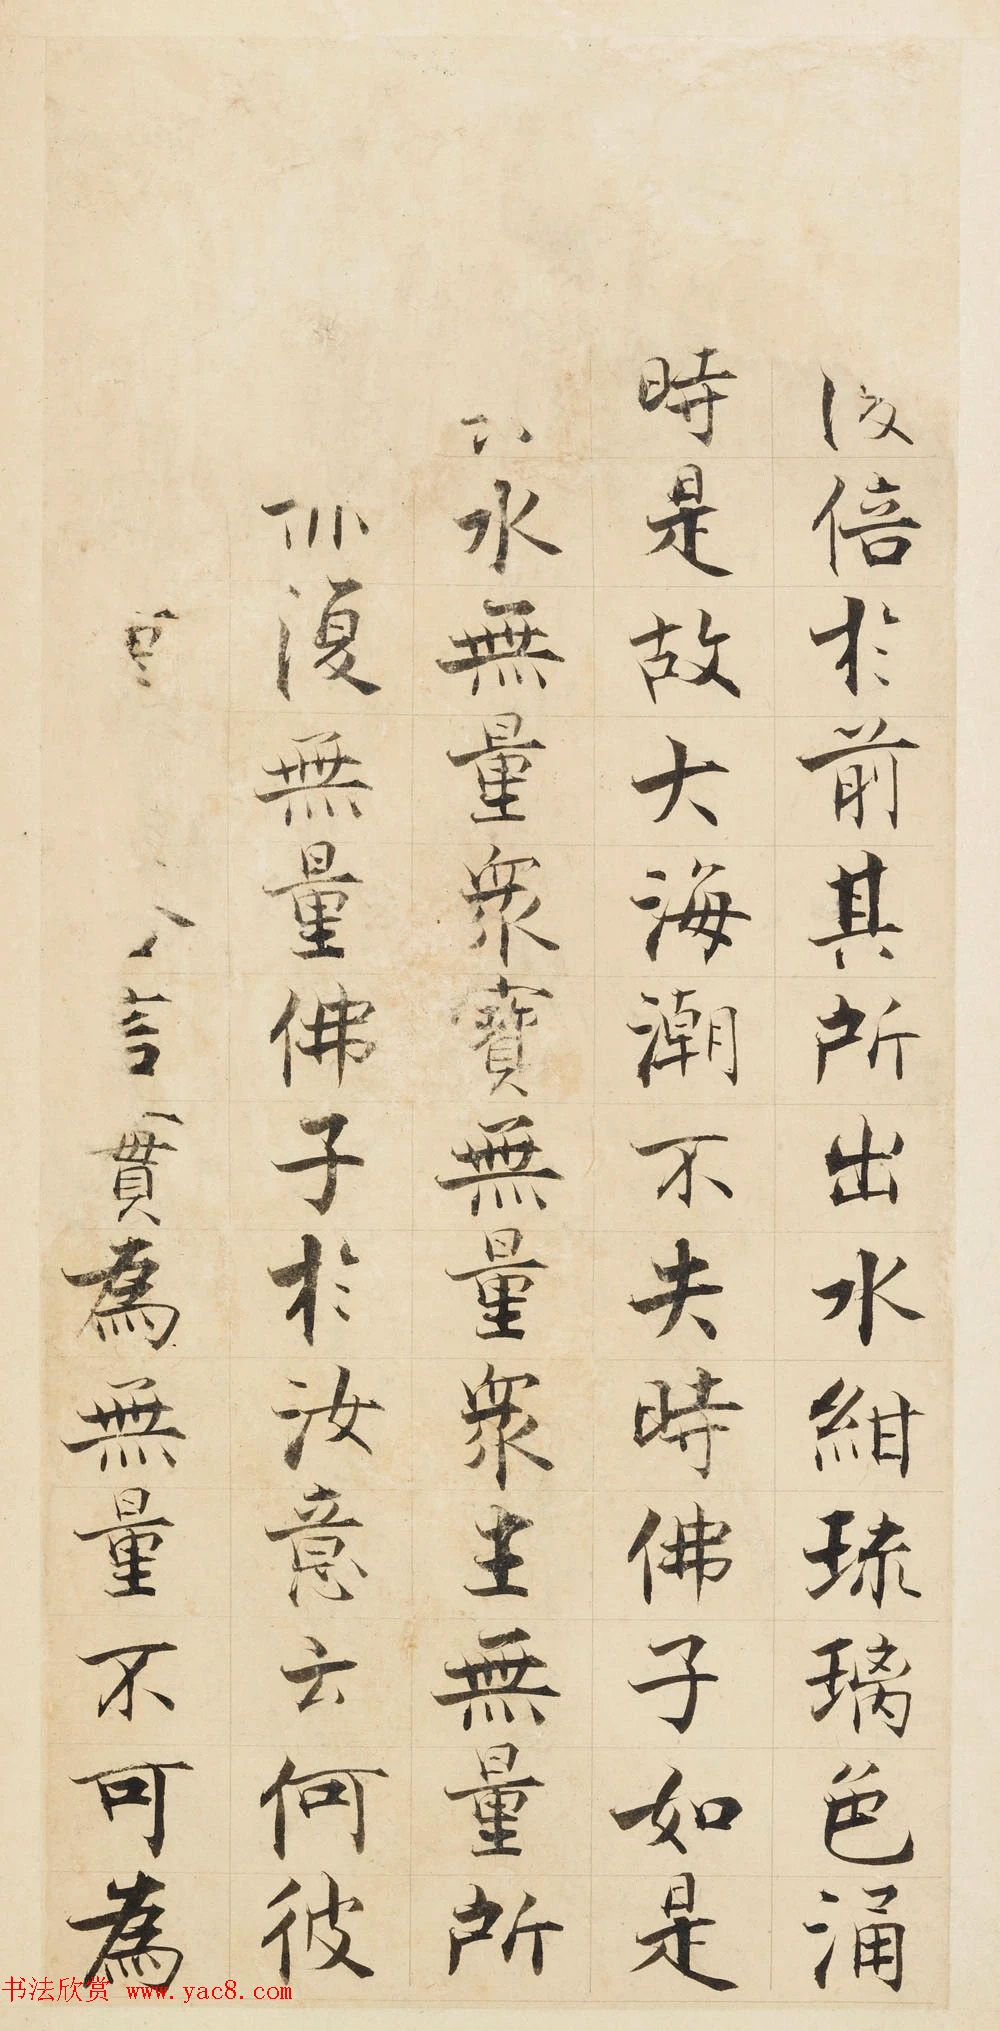 倍於前其所出水紺琉璃色涌
時是故大海潮不失時佛子如是
水無量眾寶無量眾生無量所
復無量佛子於汝意云何彼
言實為無量不可為
书法欣赏 www.yac8.com